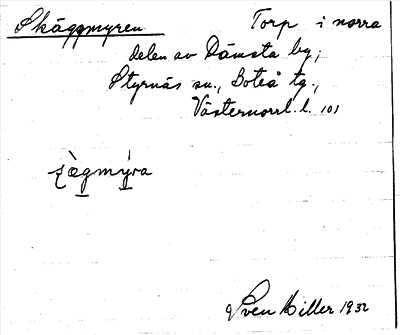 Skäggmyren Torp i norra
delen av Dämsta by,
Styrnäs sn., Boteå tg.,
Västernorrl. l. 101
Sven Hiller 1932